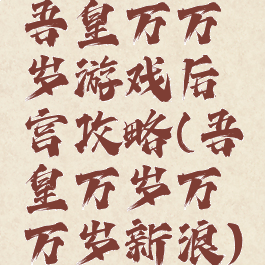 吾皇万万
岁游戏后
宫攻略(吾
皇万岁万
万岁新浪)